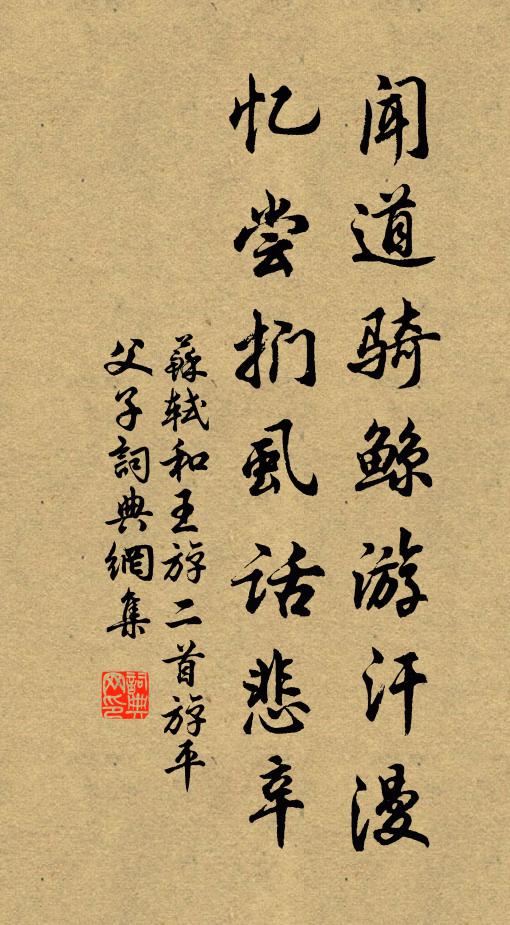 闻道骑鲸游汗漫
忆尝扪虱话悲辛
蘇轼和王斿二首斿平
父子詞典網集
詞典网印